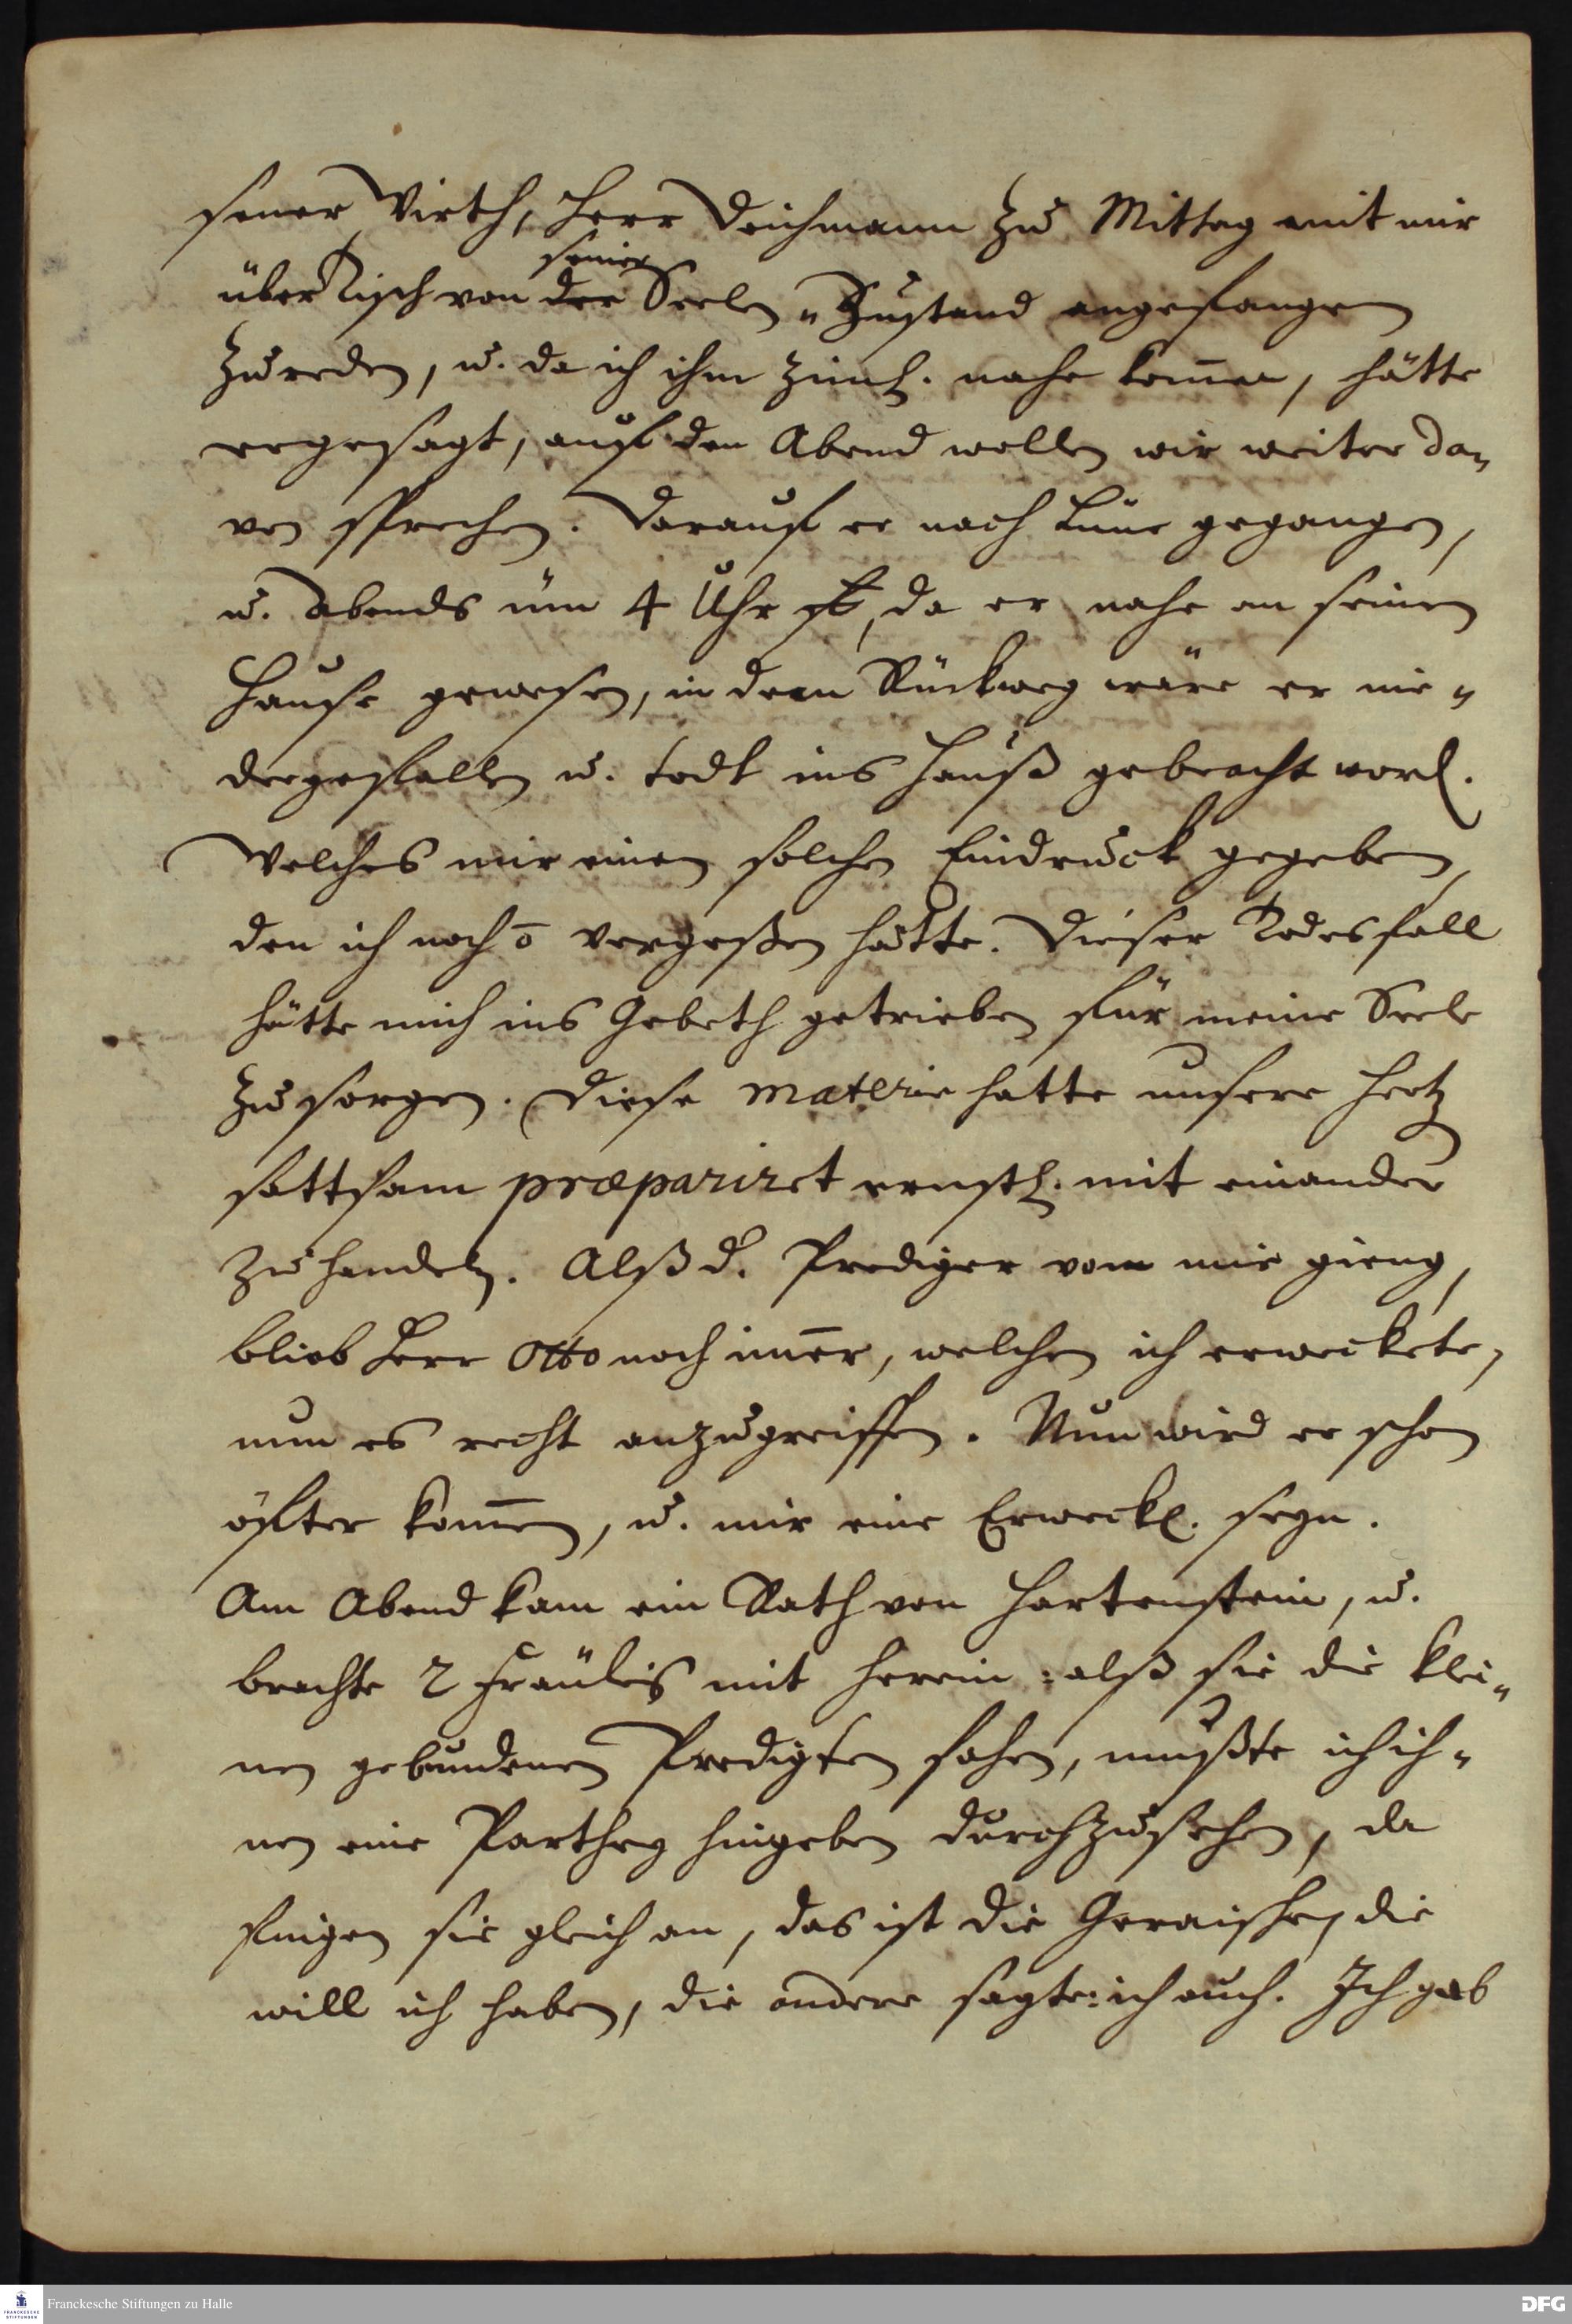 sener Wirth, Herr Deichmann zu Mittag mit mir
seiner
über Tisch von der Seelen "Zustand angefangen
zu reden, u. da ich ihm zimL. nahe kom̄en, hätte
er gesagt, auf den Abend wollen wir weiter da„
von sprechen. Darauf er nach Lüne gegangen,
u. Abends üm 4 Uhr , da er nahe an seinen
Hause gewesen, in dem Rückweg wäre er nie„
dergefallen u. todt ins Hauß gebracht word.
Welches mir einen solchen Eindruck gegeben,
den ich noch ō vergeßen hätte. Dieser Todesfall
hätte mich ins Gebeth getrieben für meine Seele
zu sorgen. Diese materie hatte unsere Hertz
sattsam præpariret ernstl. mit einander
zu handeln. Alß d. Prediger von mir gieng,
blieb Herr Otto noch im̄er, welchen ich erweckete,
nun es recht anzugreiffen. Nun wird er schon
öfter kom̄en, u. mir eine Erweckl. seyn.
Am Abend kam ein Rath von Hartenstein, u.
brachte 2 Fräuleis mit herein: alß sie die klei„
nen gebundenen Predigten sahen, mußte ich ih„
nen eine Parthey hingeben durchzusehen, da
fingen sie gleich an, das ist die Geraische, die
will ich haben, die andere sagte: ich auch. Ich gab
Franckesche Stiftungen zu Halle
DFG